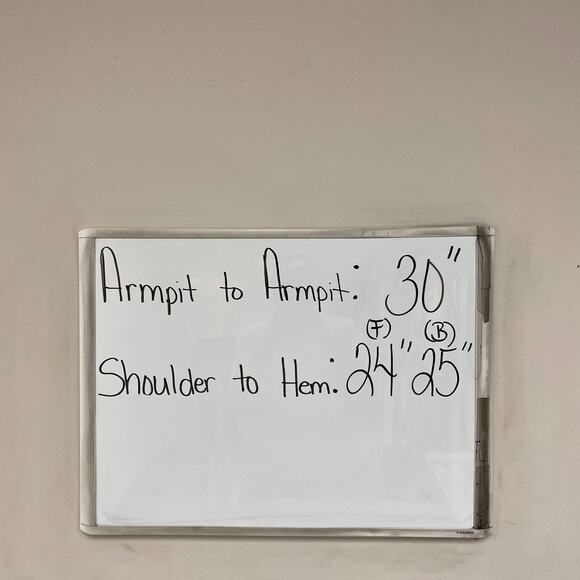 Armpit to Armpit: 30"
(F) (B)
Shoulder to Hem: 24" 25"